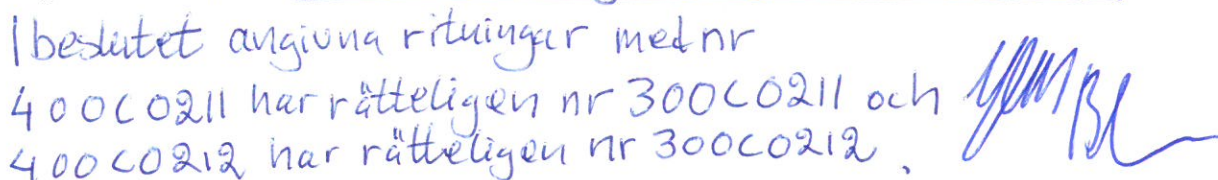 I beslutet angivna ritningar med nr
400C0211 har rätteligen nr 300C0211 och
400C0212 har rätteligen nr 300C0212.